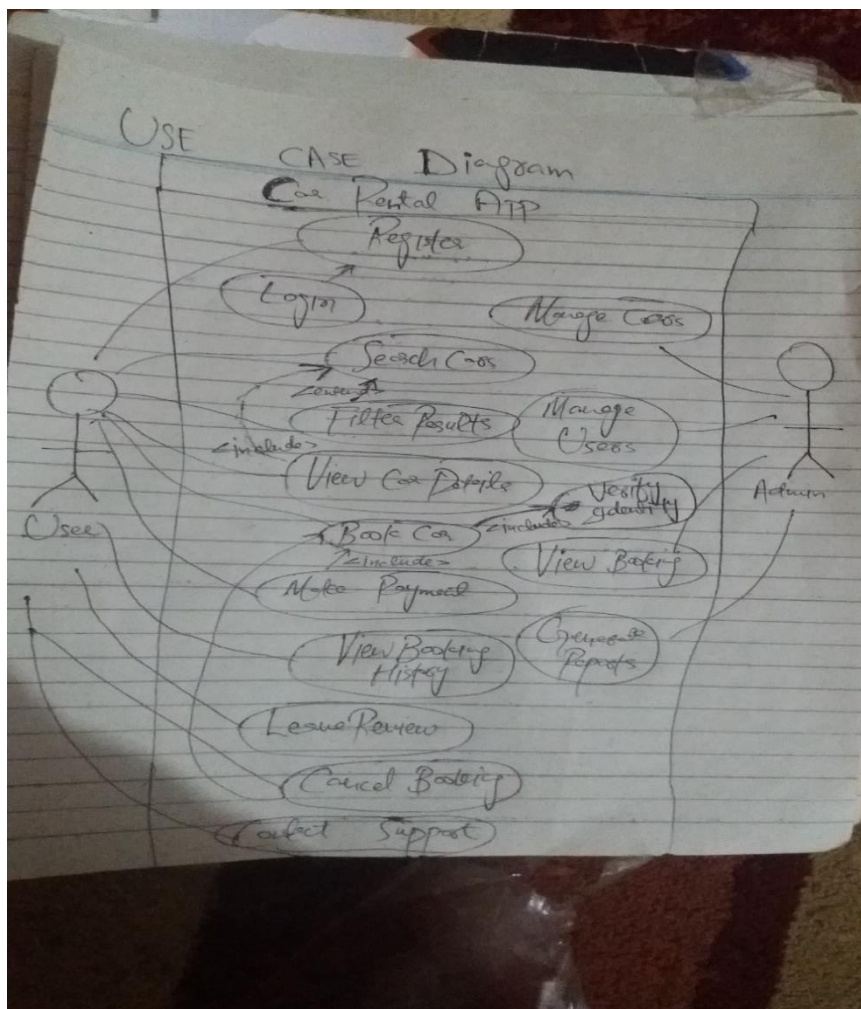 USE CASE Diagram
Car Rental App
Register
Login
Manage Cars
Search Cars
<extends>
Filter Results
Manage
Users
<include>
View Car Details
Verify
Identity
Admin
User
Book Car
<include>
<include>
View Booking
Make Payment
Generate
Reports
View Booking
History
Leave Review
Cancel Booking
Contact Support